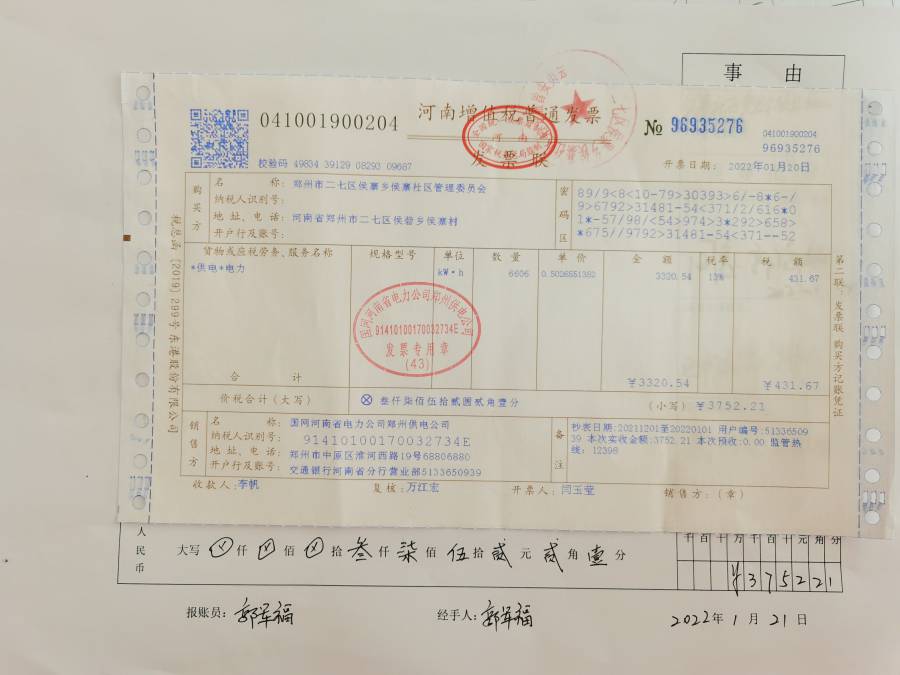 事 由
041001900204
河南增值税普通发票
发票联
№ 96935276
041001900204
96935276
校验码 49834 39129 08293 09687
开票日期： 2022年01月20日
购买方
名 称：郑州市二七区侯寨乡侯寨社区管理委员会
纳税人识别号：
地 址、电 话：河南省郑州市二七区侯寨乡侯寨村
开户行及账号：
密码区
89/9<8<10-79>30393>6/-8*6-/
9>6792>31481-54<371/2/616*0
1*-57/98/<54>974>3*292>658>
*675//9792>31481-54<371--52
货物或应税劳务、服务名称 规格型号 单位 数 量 单 价 金 额 税率 税 额
*供电*电力 kW·h 6606 3320.54 13% 431.67
国网河南省电力公司郑州供电公司
91410100170032734E
发票专用章
(43)
合 计 ￥3320.54 ￥431.67
价税合计（大写） ⊗ 叁仟柒佰伍拾贰圆贰角壹分 （小写）￥3752.21
销售方
名 称：国网河南省电力公司郑州供电公司
纳税人识别号：91410100170032734E
地 址、电 话：郑州市中原区淮河西路19号68806880
开户行及账号：交通银行河南省分行营业部5133650939
备注
抄表日期:20211201至20220101 用户编号:51336509
39 本次实收金额:3752.21 本次预收:0.00 监管热
线：12398
收款人：李帆 复核：万江宏 开票人：闫玉莹 销售方：（章）
税总函〔2019〕299号东港股份有限公司
第二联：发票联 购买方记账凭证
人民币
大写 仟 佰 拾 叁仟 柒佰 伍拾 贰元 贰角 壹分
千 百 十 万 千 百 十 元 角 分
￥ 3 7 5 2 2 1
报账员：郭军福 经手人：郭军福 2022年 1月 21日